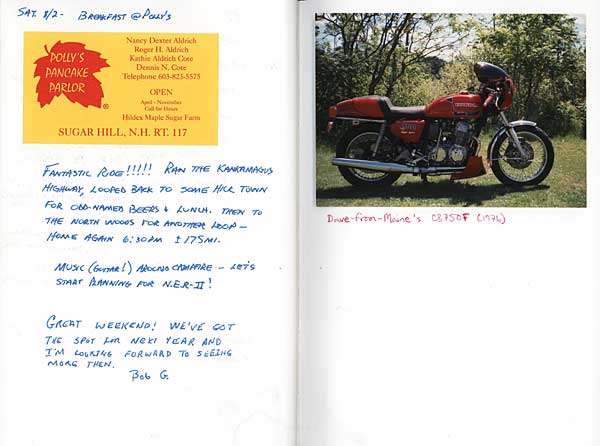 SAT. 8/2 - BREAKFAST @ POLLY'S
POLLY'S
PANCAKE
PARLOR
®
Nancy Dexter Aldrich
Roger H. Aldrich
Kathie Aldrich Cote
Dennis N. Cote
Telephone 603-823-5575
OPEN
April - November
Call for Hours
Hildex Maple Sugar Farm
SUGAR HILL, N.H. RT. 117
FANTASTIC RIDE!!!!! RAN THE KANKAMAGUS
HIGHWAY, LOOPED BACK TO SOME HICK TOWN
FOR ODD-NAMED BEERS & LUNCH. THEN TO
THE NORTH WOODS FOR ANOTHER LOOP -
HOME AGAIN 6:30PM 175MI.
MUSIC (GUITAR!) AROUND CAMPFIRE - LET'S
START PLANNING FOR N.E.R-II!
GREAT WEEKEND! WE'VE GOT
THE SPOT FOR NEXT YEAR AND
I'M LOOKING FORWARD TO SEEING
MORE THEN.
BOB G.
Dave-from-Maine's CB750F (1976)